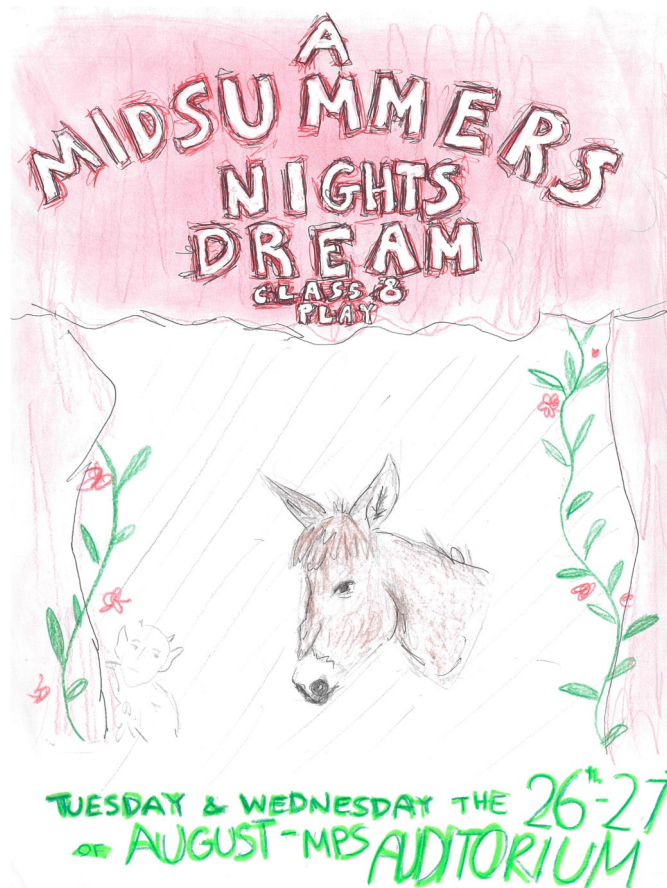 A
MIDSUMMERS
NIGHTS
DREAM
CLASS 8
PLAY
TUESDAY & WEDNESDAY THE 26th-27
OF AUGUST - MPS AUDITORIUM